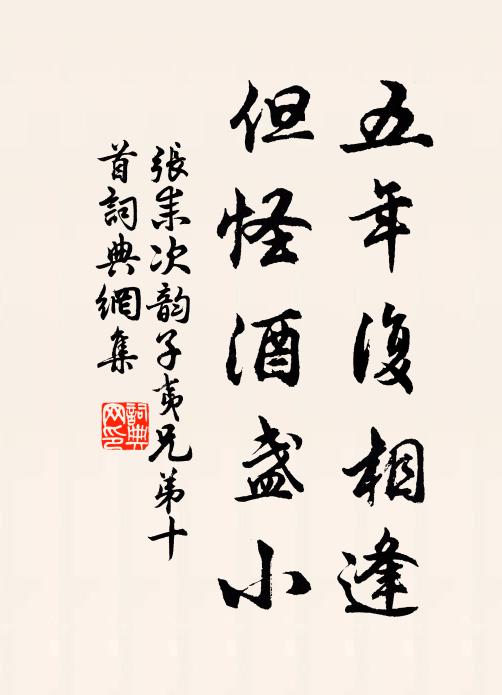 五年復相逢
但怪酒盞小
張耒次韵子夷兄弟十
首詞典網集
詞典
网印